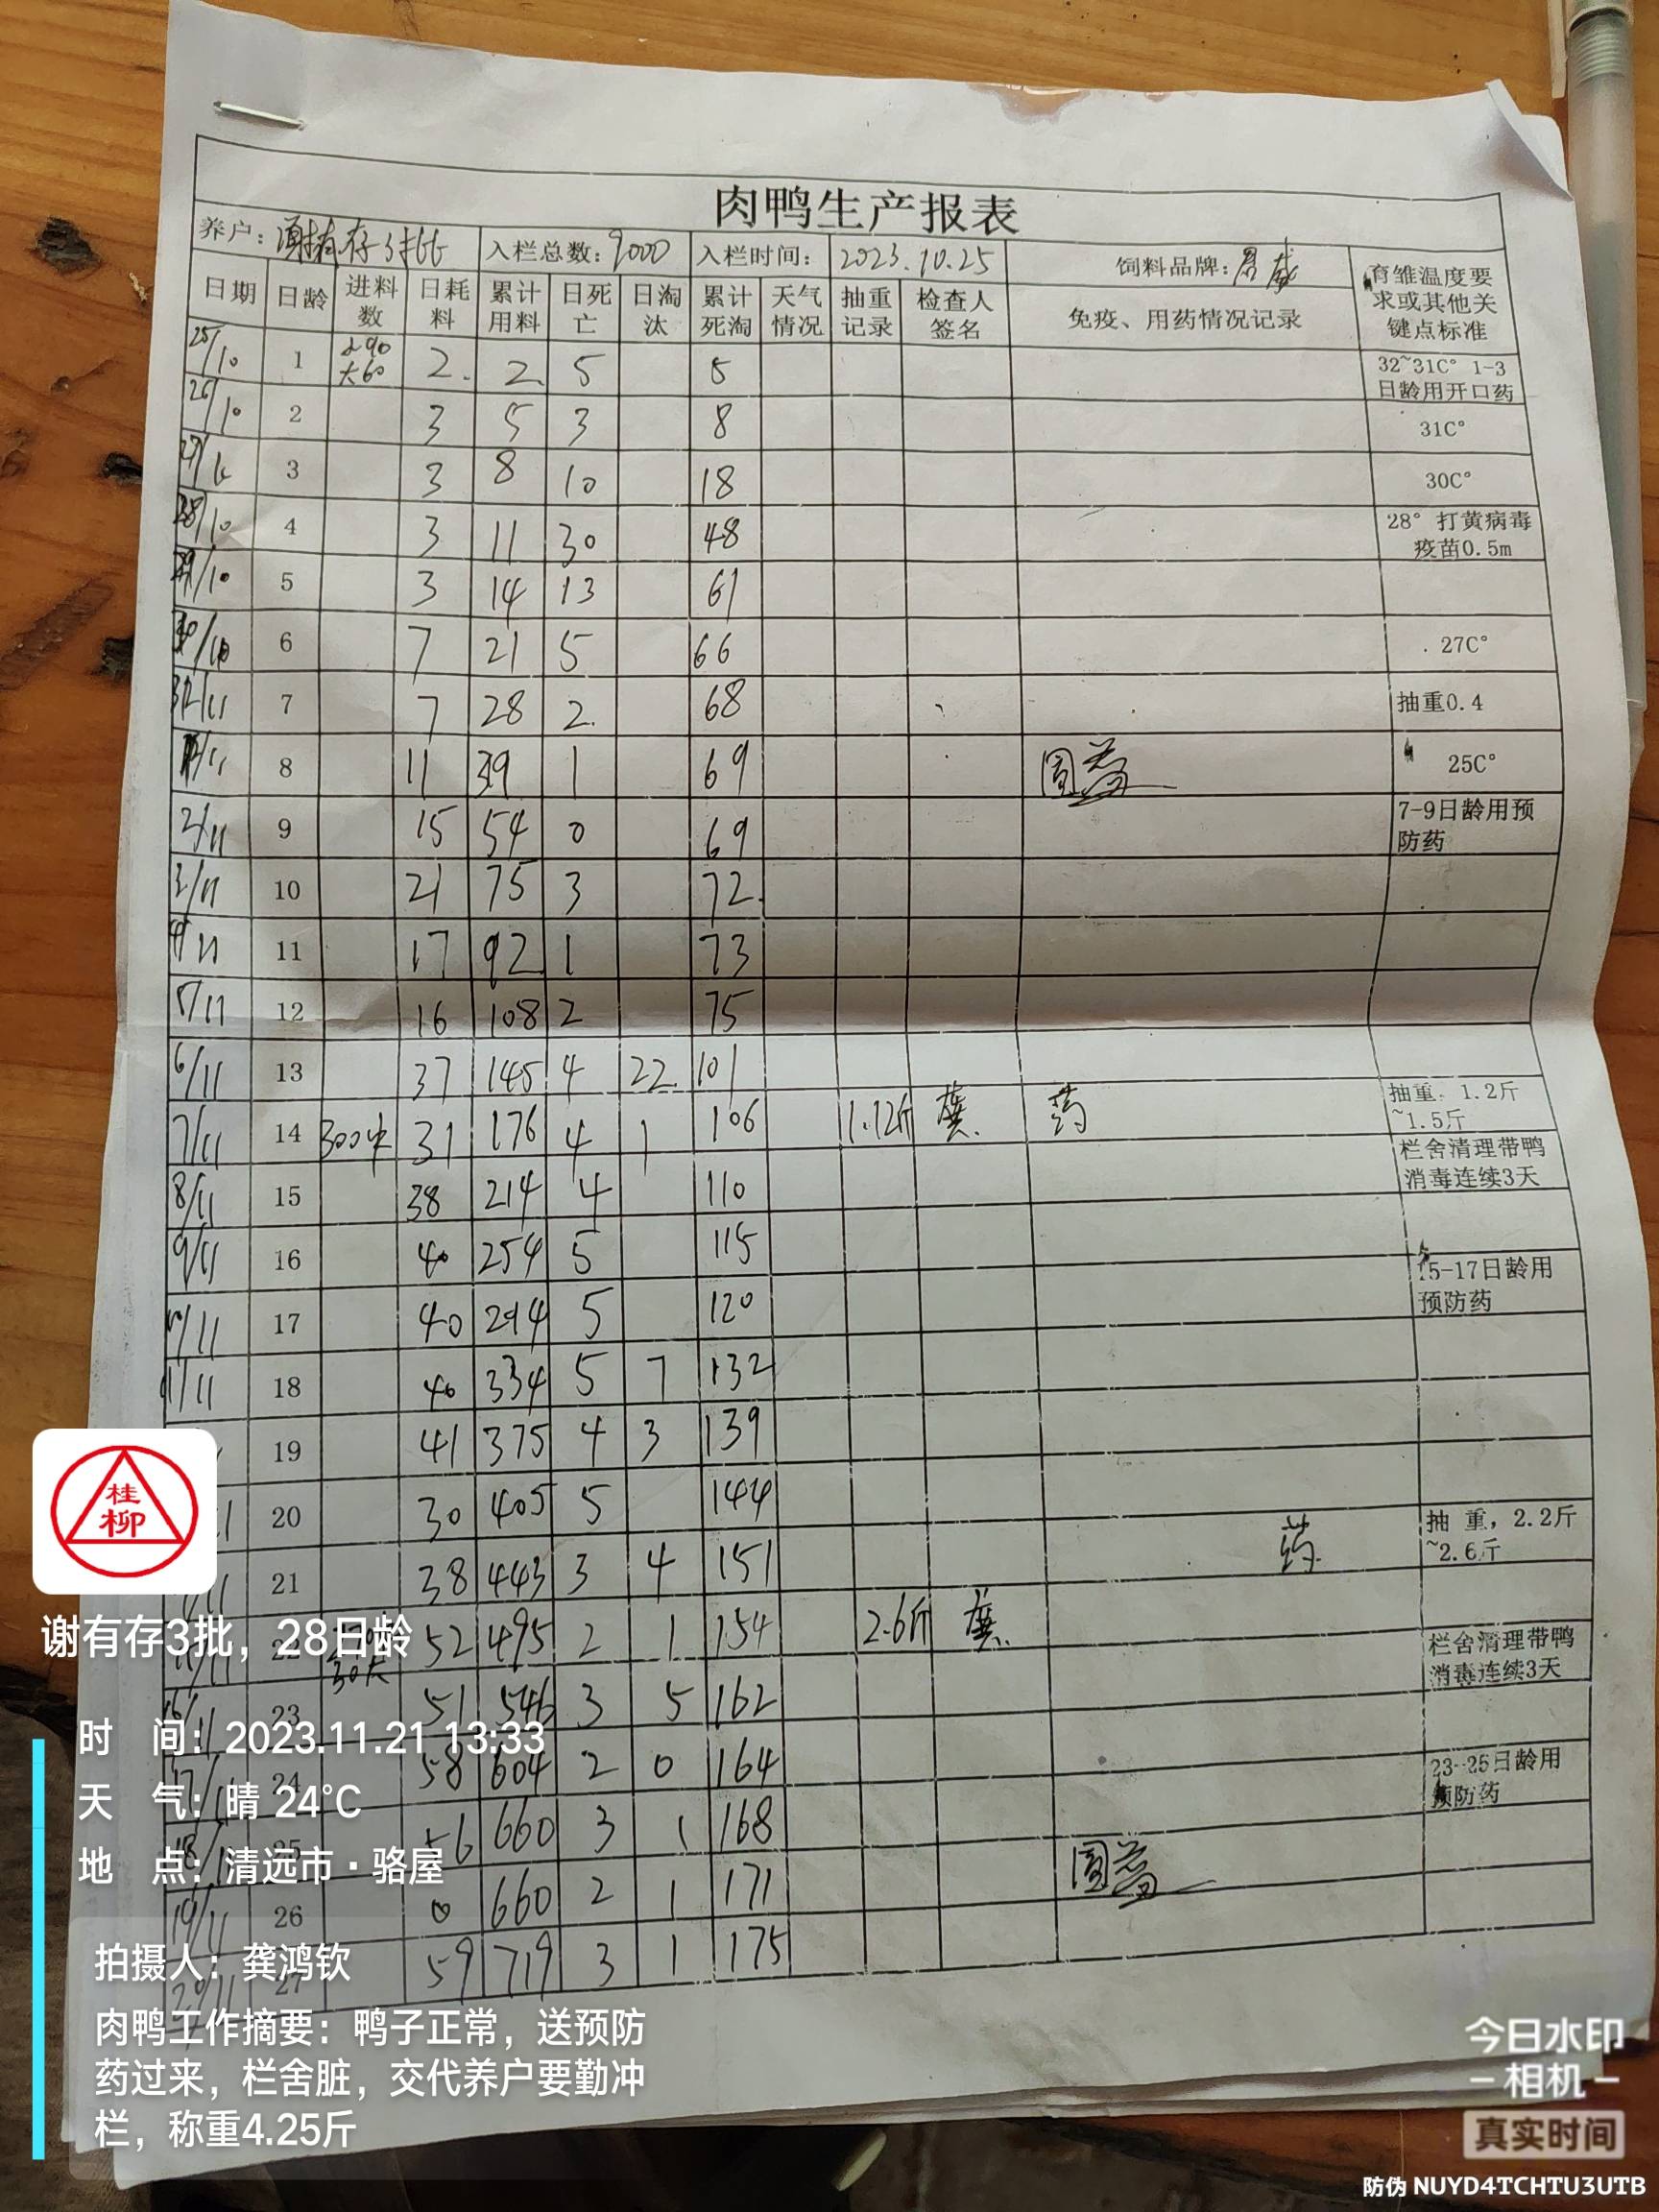 肉鸭生产报表
养户：谢有存3批 入栏总数：9000 入栏时间：2023.10.25 饲料品牌： 育雏温度要求或其他关键点标准
日期 日龄 进料数 日耗料 累计用料 日死亡 日淘汰 累计死淘 天气情况 抽重记录 检查人签名 免疫、用药情况记录
25/10 1 大60 2 2 5 5 32~31C° 1-3日龄用开口药
26/10 2 3 5 3 8 31C°
27/10 3 3 8 10 18 30C°
28/10 4 3 11 30 48 28° 打黄病毒疫苗0.5m
29/10 5 3 14 13 61
30/10 6 7 21 5 66 27C°
7 7 28 2 68 抽重0.4
8 11 39 1 69 25C°
2/11 9 15 54 0 69 7-9日龄用预防药
3/11 10 21 75 3 72
4/11 11 17 92 1 73
5/11 12 16 108 2 75
6/11 13 37 145 4 22 101
7/11 14 300中 31 176 4 1 106 1.12斤 龚 药 抽重、1.2斤~1.5斤
8/11 15 38 214 4 110 栏舍清理带鸭消毒连续3天
9/11 16 40 254 5 115 15-17日龄用预防药
10/11 17 40 294 5 120
11/11 18 40 334 5 7 132
19 41 375 4 3 139
20 30 405 5 144
21 38 443 3 4 151 药 抽 重，2.2斤~2.6斤
22 30大 52 495 2 1 154 2.6斤 龚 栏舍清理带鸭消毒连续3天
16/11 23 51 546 3 5 162
17/11 24 58 604 2 0 164 23-25日龄用预防药
18/11 25 56 660 3 1 168
19/11 26 0 660 2 1 171
20/11 27 59 719 3 1 175
桂柳
谢有存3批，28日龄
时 间：2023.11.21 13:33
天 气：晴 24°C
地 点：清远市·骆屋
拍摄人：龚鸿钦
肉鸭工作摘要：鸭子正常，送预防
药过来，栏舍脏，交代养户要勤冲
栏，称重4.25斤
今日水印
相机
真实时间
防伪 NUYD4TCHTU3UTB